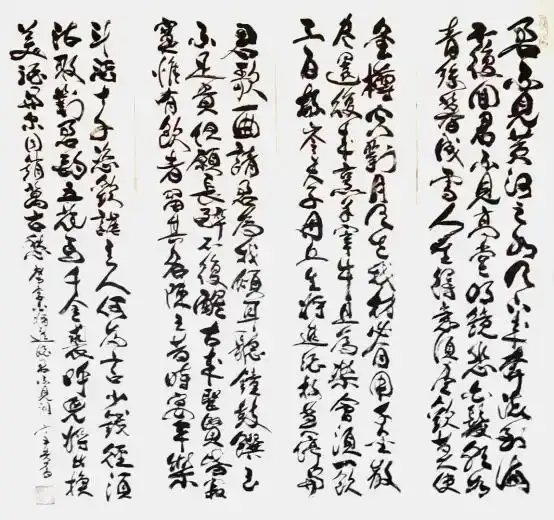 君不見黃河之水天上來奔流到海
不復回君不見高堂明鏡悲白髮朝如
青絲暮成雪人生得意須盡歡莫使
金樽空對月天生我材必有用千金散
盡還復來烹羊宰牛且為樂會須一飲
三百杯岑夫子丹丘生將進酒杯莫停與
君歌一曲請君為我傾耳聽鐘鼓饌玉
不足貴但願長醉不復醒古來聖賢皆寂
寞惟有飲者留其名陳王昔時宴平樂
斗酒十千恣歡謔主人何為言少錢徑須
沽取對君酌五花馬千金裘呼兒將出換
美酒與爾同銷萬古愁 將進酒君不見